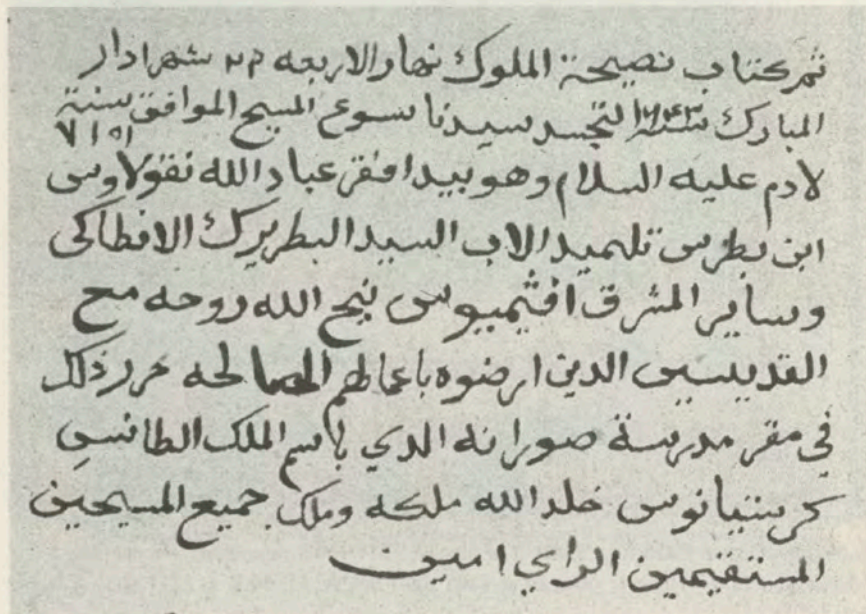 تم كتاب نصيحة الملوك نهار الاربعه شهر ادار
المبارك سنة ١٦٤٣ لتجسد سيدنا يسوع المسيح الموافق سنة ٧١٥١
لادم عليه السلام وهو بيد افقر عباد الله نقولاوس
ابن بطرس تلميد الاب السيد البطريرك الانطاكي
وساير المشرق افثيميوس نيح الله روحه مع
القديسين الدين ارضوه باعمالهم الصالحه حرر ذلك
في مقر مدرسة صورانه الدي باسم الملك الطانسي
كرستيانوس خلد الله ملكه وملك جميع المسيحين
المستقيمين الراي امين